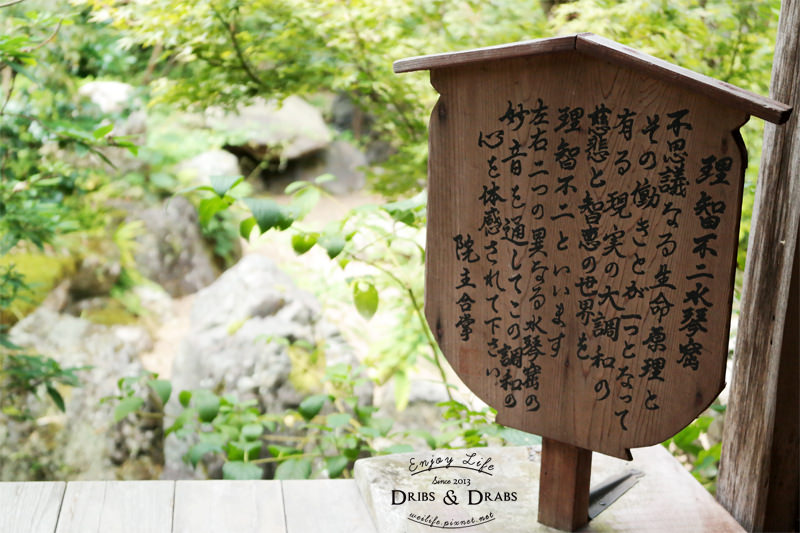 理智不二水琴窟
不思議なる生命原理と
その働きとが一つとなって
有る現実の大調和の
慈悲と智恵の世界を
理智不二といいます
左右二つの異なる水琴窟の
妙音を通してこの調和の
心を体感されて下さい
院主合掌
Enjoy Life
Since 2013
DRIBS & DRABS
weilife.pixnet.net